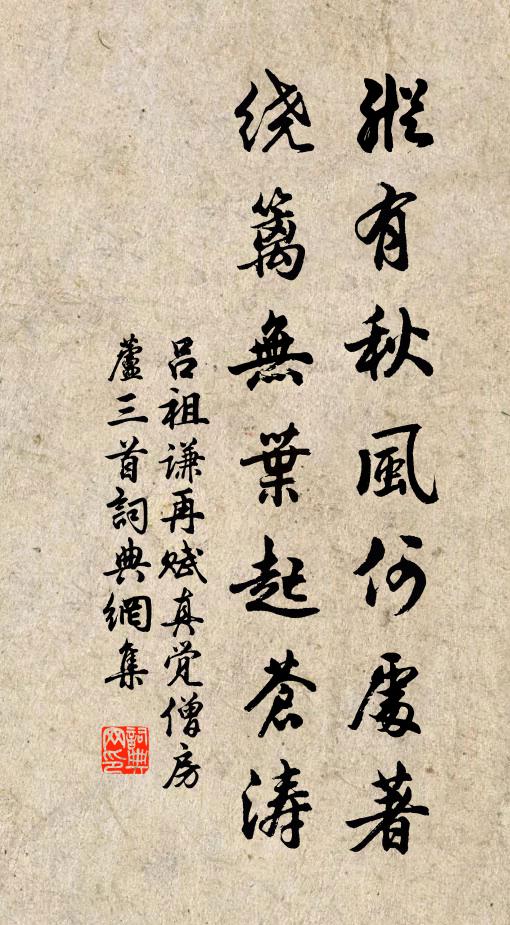 縱有秋風何處著
绕篱無葉起蒼涛
吕祖谦再赋真觉僧房
蘆三首詞典網集
詞典网印